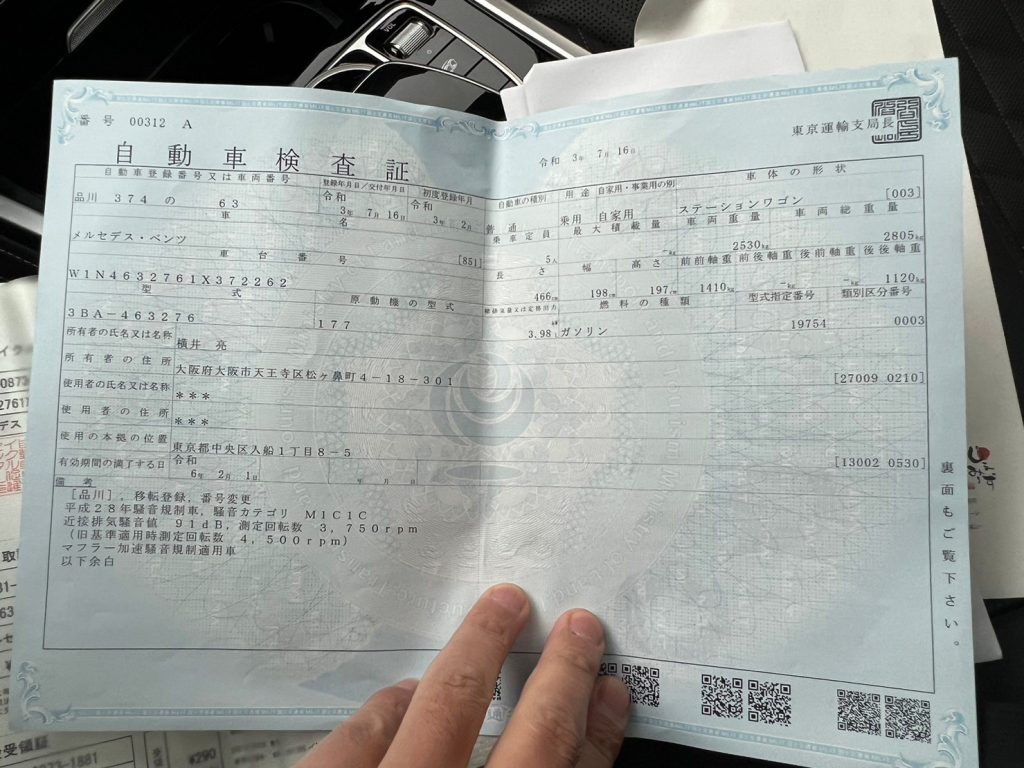 番号 00312 A
東京運輸支局長
令和 3年 7月 16日
自動車検査証
自動車登録番号又は車両番号 登録年月日/交付年月日 初度登録年月 自動車の種別 用途 自家用・事業用の別 車体の形状
品川 374 の 63 令和 3年 7月 16日 令和 3年 2月 普通 乗用 自家用 ステーションワゴン [003]
車名 乗車定員 最大積載量 車両重量 車両総重量
メルセデス・ベンツ [851] 5人 -kg 2530kg 2805kg
車台番号 長さ 幅 高さ 前前軸重 前後軸重 後前軸重 後後軸重
W1N4632761X372262 466cm 198cm 197cm 1410kg -kg -kg 1120kg
型式 原動機の型式 総排気量又は定格出力 燃料の種類 型式指定番号 類別区分番号
3BA-463276 177 kW 3.98L ガソリン 19754 0003
所有者の氏名又は名称 横井 亮
所有者の住所 大阪府大阪市天王寺区松ヶ鼻町4-18-301 [27009 0210]
使用者の氏名又は名称 ***
使用者の住所 ***
使用の本拠の位置 東京都中央区入船1丁目8-5 [13002 0530]
有効期間の満了する日 令和 6年 2月 1日 年 月 日
備考
[品川],移転登録,番号変更
平成28年騒音規制車,騒音カテゴリ M1C1C
近接排気騒音値 91dB,測定回転数 3,750rpm
(旧基準適用時測定回転数 4,500rpm)
マフラー加速騒音規制適用車
以下余白
裏面もご覧下さい。
VOL
受領証
¥290